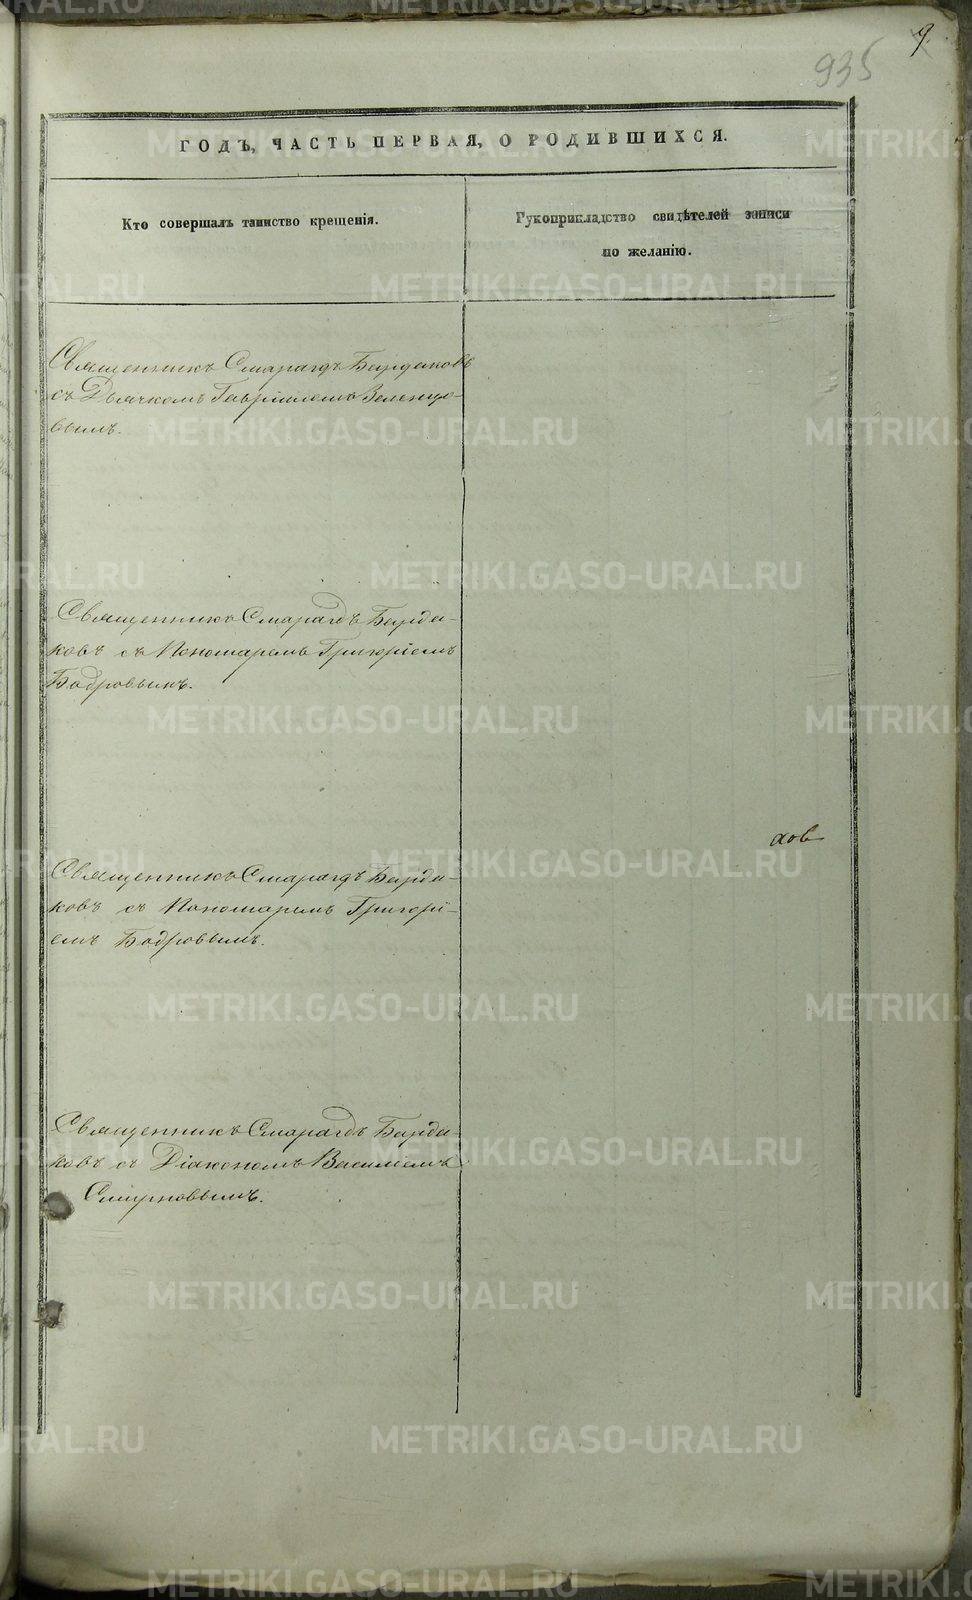 9.
935
ГОДЪ, ЧАСТЬ ПЕРВАЯ, О РОДИВШИХСЯ.
Кто совершалъ таинство крещенія.
Рукоприкладство свидѣтелей записи
по желанію.
Священникъ Смарагдъ Бурдаковъ
съ Дьячкомъ Гавріиломъ Зеленцо-
вымъ.
Священникъ Смарагдъ Бурда-
ковъ съ Пономаремъ Григоріемъ
Бодровымъ.
хов
Священникъ Смарагдъ Бурда-
ковъ съ Пономаремъ Григорі-
емъ Бодровымъ.
Священникъ Смарагдъ Бурда-
ковъ съ Діакономъ Василіемъ
Смирновымъ.
METRIKI.GASO-URAL.RU